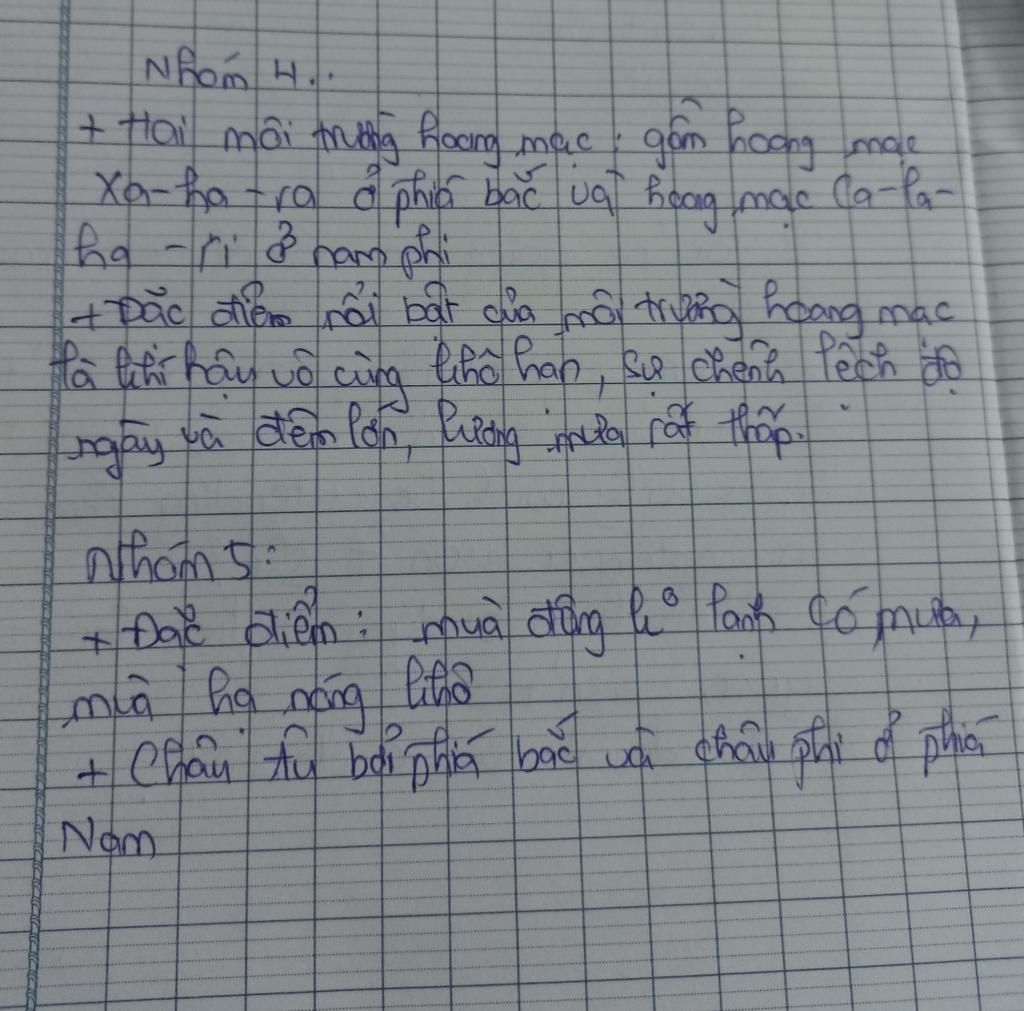 Nhóm 4..
+ Hai môi trường hoang mạc: gồm hoang mạc
Xa-ha-ra ở phía bắc và hoang mạc Ca-la-
ha-ri ở nam phi
+ Đặc điểm nổi bật của môi trường hoang mạc
là khí hậu vô cùng khô hạn, sự chênh lệch độ
ngày và đêm lớn, lượng mưa rất thấp.
Nhóm 5:
+ Đặc điểm: mùa đông k° lạnh có mưa,
mùa hạ nóng khô
+ Châu Âu bởi phía bắc và châu phi ở phía
Nam